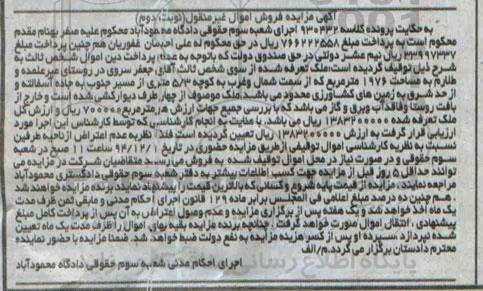 آگهی مزایده فروش اموال غیرمنقول(نوبت دوم)
به حکایت پرونده کلاسه ۹۳۰۴۳۲ اجرای شعبه سوم حقوقی دادگاه محمودآباد محکوم علیه صفر بهنام مقدم
محکوم است به پرداخت مبلغ ۷۶۶۲۲۲۵۵۸ ریال در حق محکوم له علی احسان غفوریان هم چنین پرداخت مبلغ
۳۳۹۹۷۳۳۷ ریال نیم عشر دولتی در حق صندوق دولت که باتوجه به عدم پرداخت دین اموال شخص ثالث به
شرح ذیل توقیف گردیده است:ملک تعرفه شده از سوی شخص ثالث آقای جعفر سروی در روستای میرعلمده و
طارم به مساحت ۱۹۷۶ مترمربع که از سمت شمال وغرب به کوچه ۵/۳۰ متری از مسیر جنوب به جاده آسفالته و
از حد شرق به زمین های کشاورزی محدود می باشد.ملک موصوف از چهار طرف دیوارکشی شده است و خارج از
بافت روستا وفاقد آب وبرق و گاز می باشد که با بررسی جمیع جهات ارزش هر مترمربع ۷۰۰۰۰۰ ریال و ارزش کل
ملک تعرفه شده ۱۳۸۳۲۰۰۰۰۰ ریال می باشد. با عنایت به انجام کارشناسی که توسط کارشناس این اجرا مورد
ارزیابی قرار گرفت به ارزش ۱۳۸۳۲۰۰۰۰۰ ریال تعیین گردیده است فلذا نظریه عدم اعتراض از ناحیه طرفین
نسبت به نظریه کارشناسی اموال توقیفی ازطریق مزایده حضوری در تاریخ ۹۴/۱۲/۱ ساعت ۱۱ صبح در شعبه
سوم حقوقی و در صورت نیاز در محل اموال توقیف شده به فروش می رسد متقاضیان شرکت در مزایده می
توانند حداقل ۵ روز قبل از مزایده جهت کسب اطلاعات بیشتر به دفتر شعبه سوم حقوقی دادگستری محمودآباد
مراجعه نمایند . مزایده از قیمت پایه شروع و کسانی که بالاترین قیمت را پیشنهاد نمایند برنده مزایده خواهند شد
هم چنین ده درصد مبلغ اعلامی فی المجلس برابر ماده ۱۲۹ قانون اجرای احکام مدنی و مابقی ثمن ظرف مدت
یک ماه اخذ خواهد شد و یک هفته پس از برگزاری مزایده و عدم وصول اعتراض به آن پس از پرداخت کامل مبلغ
پیشنهادی ، انتقال اموال صورت خواهد گرفت . چنانچه برنده مزایده بقیه بهای اموال را ظرف مدت یک ماه تعیین
شده نپردازد ،سپرده او پس از کسر هزینه مزایده به نفع دولت ضبط خواهد شد. ضمنا مزایده با حضور نماینده
محترم دادستان برگزار می گردد.م/الف
اجرای احکام مدنی شعبه سوم حقوقی دادگاه محمودآباد